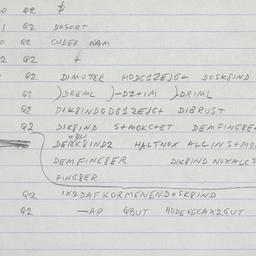 Q2 $
Q2 DOSORT
Q2 CUDER NAM
2 Q2 +
Q2 DIMUTER HODG1ZEJG+ DOSK8IND
Q1 )DREML )-DZ+IM )DRIML
Q2 DIK8INDODG1ZEJG+ DIBRUST
Q2 DIK8IND S+MOKC+ET DEMFING8E
DEMK8IND2 HALTNOX ALLINS+MO
DEMFING8ER DIK8IND NOXALCS
FING8ER
Q2 1X2DAFKORMENENDOSK8IND
Q2 —AP QBUT HODEVECAX2GUT